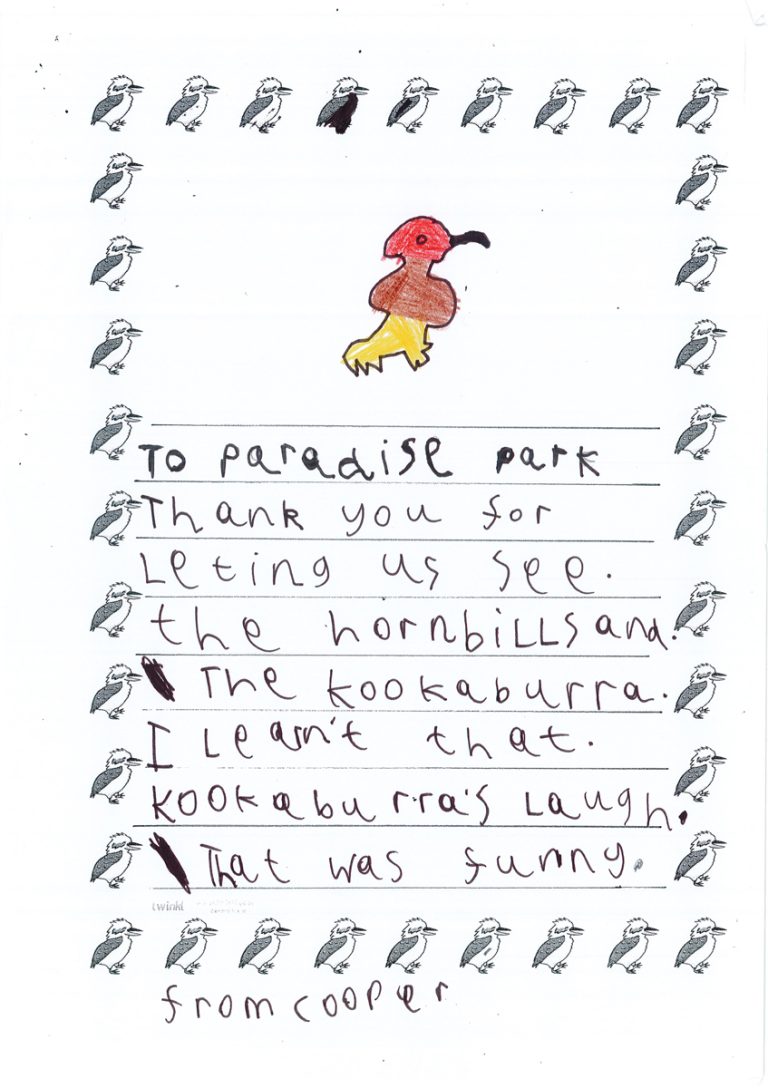 To paradise park
Thank you for
Leting us see.
the hornbiLLs and.
The kookaburra.
I Learn't that.
kookaburra's Laugh.
That was funny.
twinkl
from cooper